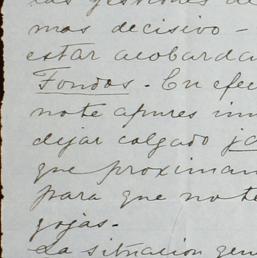 las gestiones de
mas decisivo -
estar acobarda
Fondos. - En efec
note apures inm
dejar colgado
que proximan
para que note
gojas.
La situacion gen